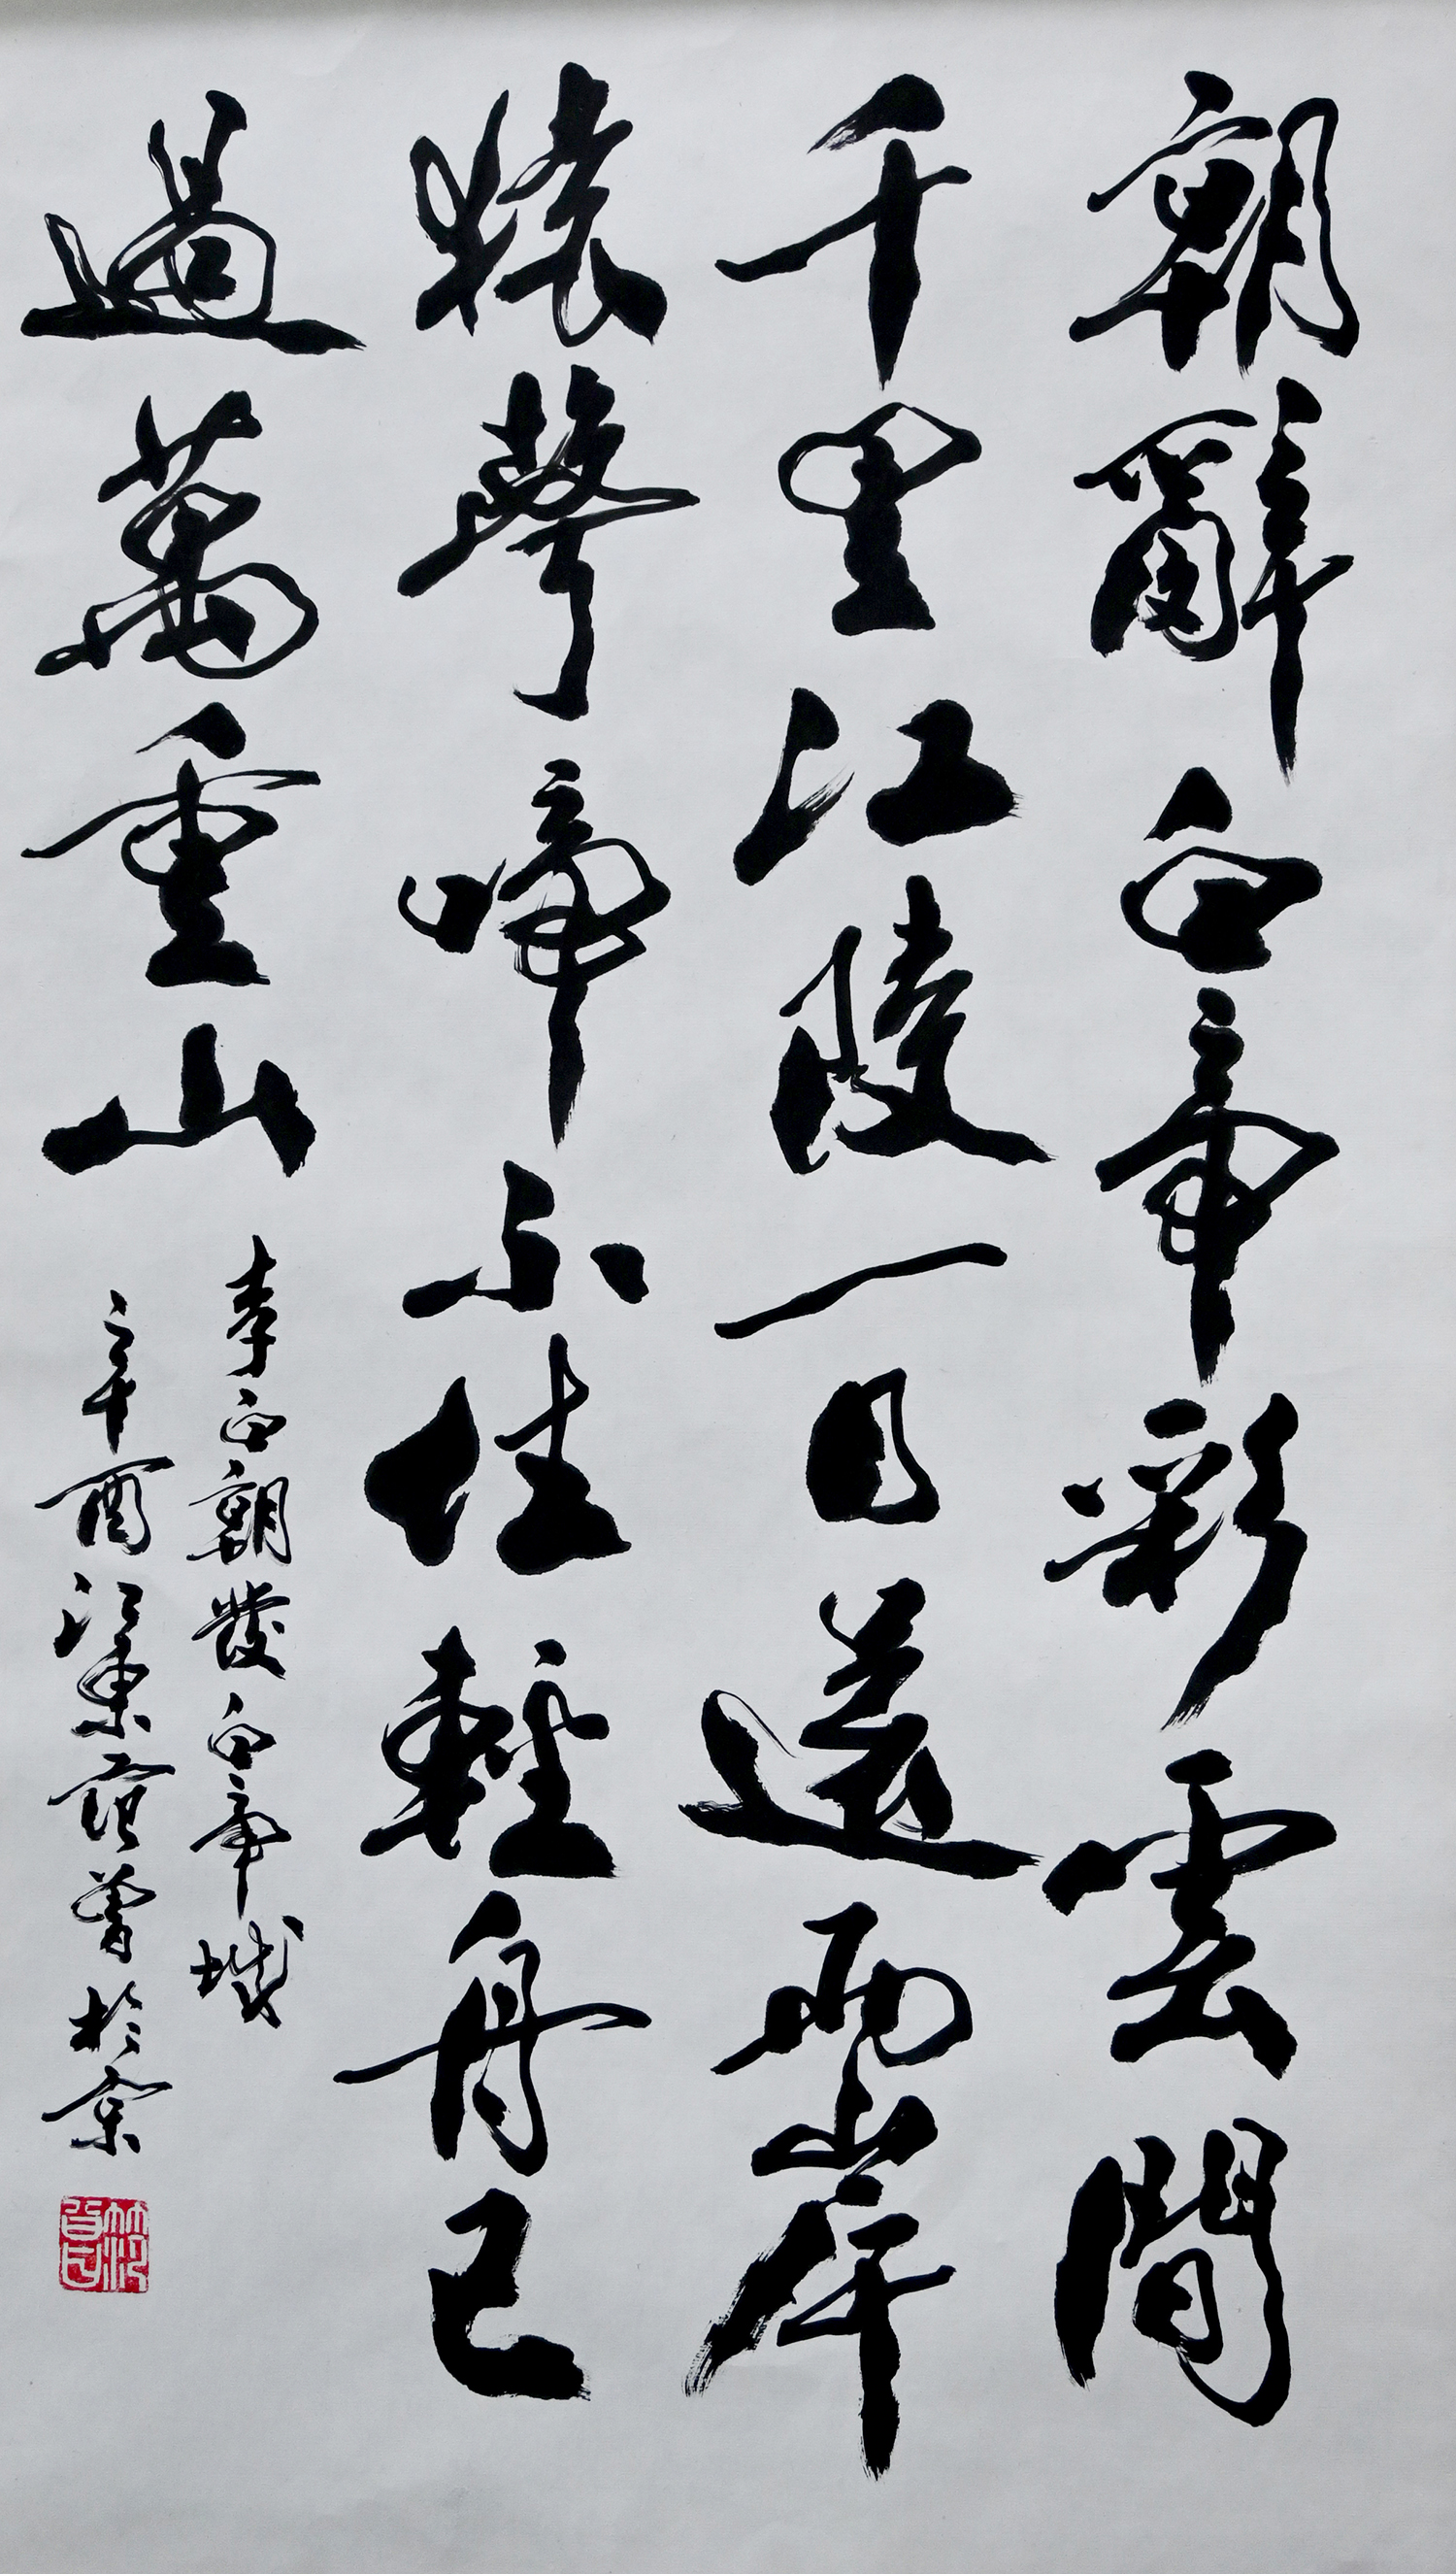 朝辭白帝彩雲間
千里江陵一日還兩岸
猿聲啼不住輕舟已
過萬重山
李白朝發白帝城
辛酉江東範曾於京